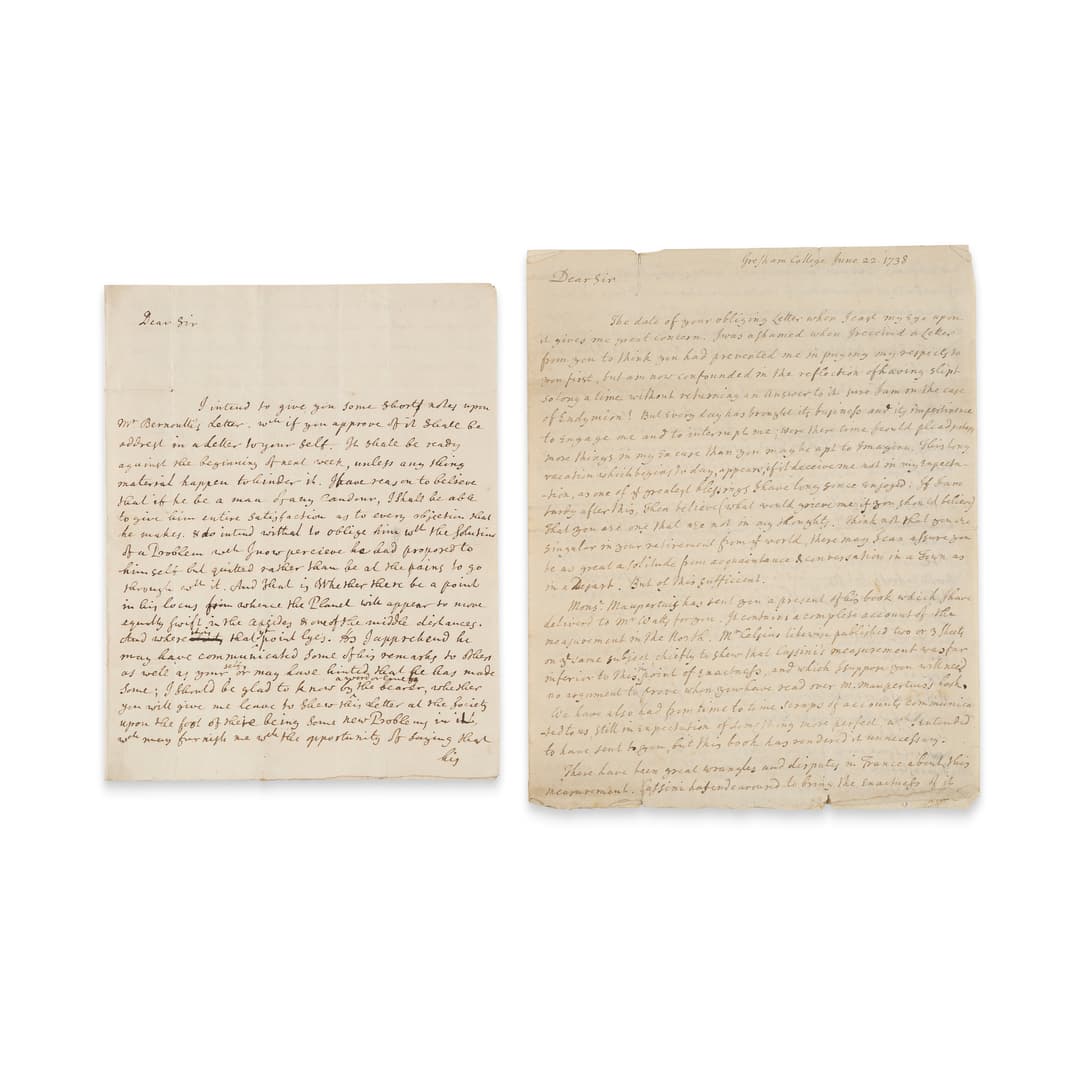 Dear Sir
I intend to give you some short notes upon
Mr Bernoulli's Letter. wch if you approve of it shall be
addrest in a Letter to your self. It shall be ready
against the beginning of next week, unless any thing
material happen to hinder it. I have reason to believe
that if he be a man of any Candour, I shall be able
to give him entire Satisfaction as to every objection that
he makes. & do intend withal to oblige him wth the Solution
of a Problem wch I now percieve he had proposed to
himself but quitted rather than be at the pains to go
through wth it. And that is Whether there be a point
in his Locus from whence the Planet will appear to move
equally swift in the apsides & one of the middle distances.
And where that point lyes. As I apprehend he
may have communicated some of his remarks to others
as well as your self, or may have hinted that he has made
some; I should be glad to know by the bearer, whether
you will give me leave to shew this Letter at the Society
upon the foot of there being some new Problems in it,
wch may furnish me wth the opportunity of saying that
his
Gresham College June 22. 1738
Dear Sir
The date of your obliging Letter when I cast my Eye upon
it gives me great concern. I was ashamed when I received a Letter
from you to think you had prevented me in paying my respects to
you first, but am now confounded in the reflection of having slipt
so long a time without returning an Answer to it. sure I am in the case
of Endymion! But every day has brought its business and its impertinence
to Engage me and to interrupt me; were there room I could plead
more things in my Excuse than you may be apt to Imagine. This long
vacation which begins to day, appears, if it deceive me not in my Expecta-
-tion, as one of ye greatest blessings I have long since enjoyed. If I am
tardy after this, then believe (what would grieve me if you should believe)
that you are one that are not in my thoughts. Think not that you are
singular in your retirement from ye world, there may I can assure you
be as great a solitude from acquaintance & conversation in a Town as
in a Desart. But of this sufficient.
Monsr. Maupertuis has sent you a present of his book which I have
delivered to Mr Watts for you. It contains a complete account of the
measurement in the North. Mr Celsius likewise published two or 3 sheets
on ye same subject chiefly to shew that Cassini's measurement was far
inferior to this in point of Exactness, and which I suppose you will need
no argument to prove when you have read over M. Maupertuis's book.
We have also had from time to time scraps of accounts communica
-ted to us, still in expectation of something more perfect wch I intended
to have sent to you, but this book has rendered it unnecessary.
There have been great wrangles and disputes in France about this
measurement. Cassini has endeavoured to bring the Exactness of it